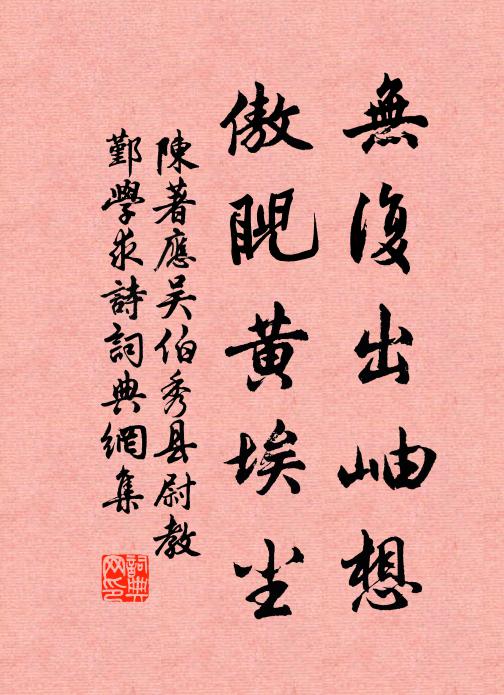 無復出岫想
傲睨黄埃尘
陳著應吴伯秀县尉教
鄞學求詩詞典網集
詞典网印